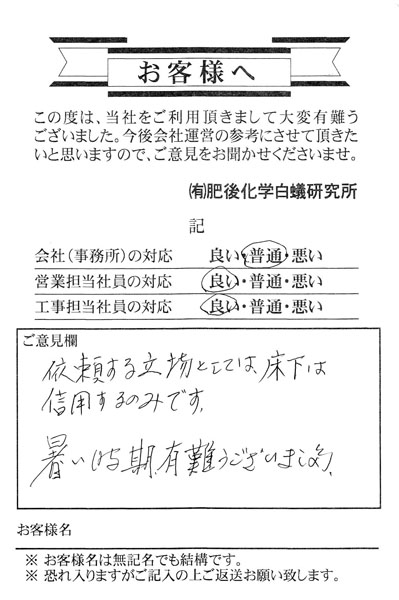 お客様へ
この度は、当社をご利用頂きまして大変有難う
ございました。今後会社運営の参考にさせて頂きた
いと思いますので、ご意見をお聞かせくださいませ。
㈲肥後化学白蟻研究所
記
会社(事務所)の対応 良い・普通・悪い
営業担当社員の対応 良い・普通・悪い
工事担当社員の対応 良い・普通・悪い
ご意見欄
依頼する立場としては床下は
信用するのみです。
暑い時期、有難うございました。
お客様名
※ お客様名は無記名でも結構です。
※ 恐れ入りますがご記入の上ご返送お願い致します。